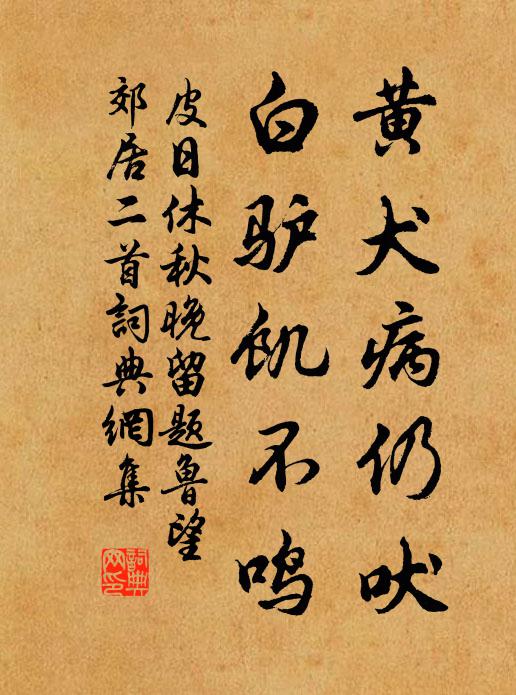 黄犬病仍吠
白驴饥不鸣
皮日休秋晚留题鲁望
郊居二首詞典網集
詞典網印